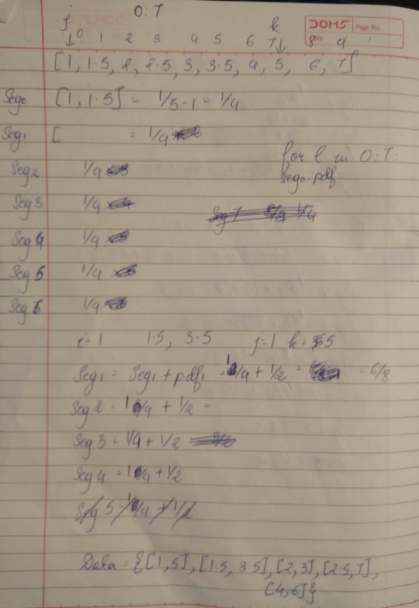 j 0:7 k
DOMS Page No.
0 1 2 3 4 5 6 7 8 9
[1, 1.5, 2, 2.5, 3, 3.5, 4, 5, 6, 7]
Seg0 [1, 1.5] = 1/5-1 = 1/4
Seg1 [ = 1/4
Seg2 1/4
Seg3 1/4
Seg4 1/4
Seg5 1/4
Seg6 1/4
for l in 0:7
Seg0.pdf
i=1 1.5, 3.5 j=1 k=5
Seg1 = Seg1 + pdf1 = 1/4 + 1/2 = = 6/8
Seg2 = 1/4 + 1/2 =
Seg3 = 1/4 + 1/2
Seg4 = 1/4 + 1/2
Seg5 1/4 + 1/2
Data = {[1,5], [1.5, 3.5], [2,3], [2.5,7],
[4,6]}